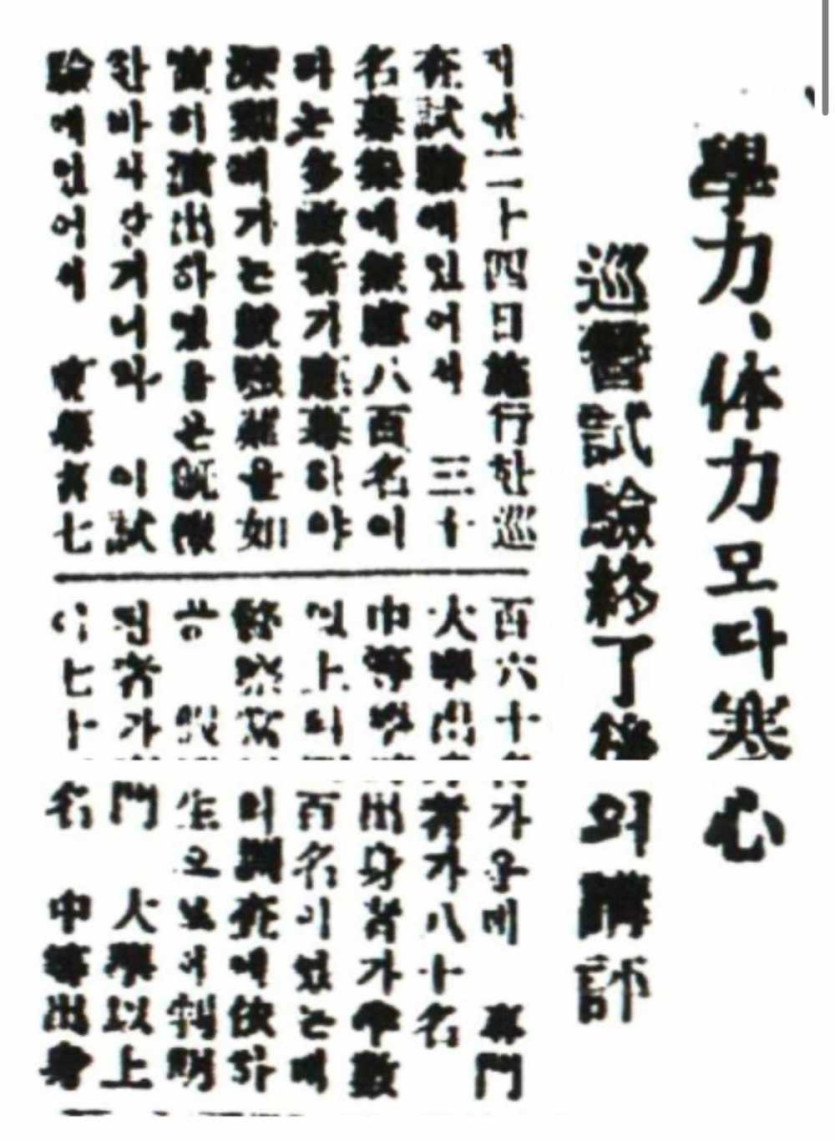 學力、体力모다寒心
巡警試驗終了後의講評
지난二十四日施行한巡
査試驗에있어서 三十
名募集에無慮八百名이
라는多數者가應募하야
深刻해가는就職難을如
實히演出하였음은旣報
한바와같거니와 이試
驗에있어서 應募者七
百六十名가운데 專門
大學出身者가八十名
中等學校出身者가半數
以上의 百名이있는데
警察當局의調査에依하
生으로보여判明
된者가專門 大學以上
이七十名 中等出身